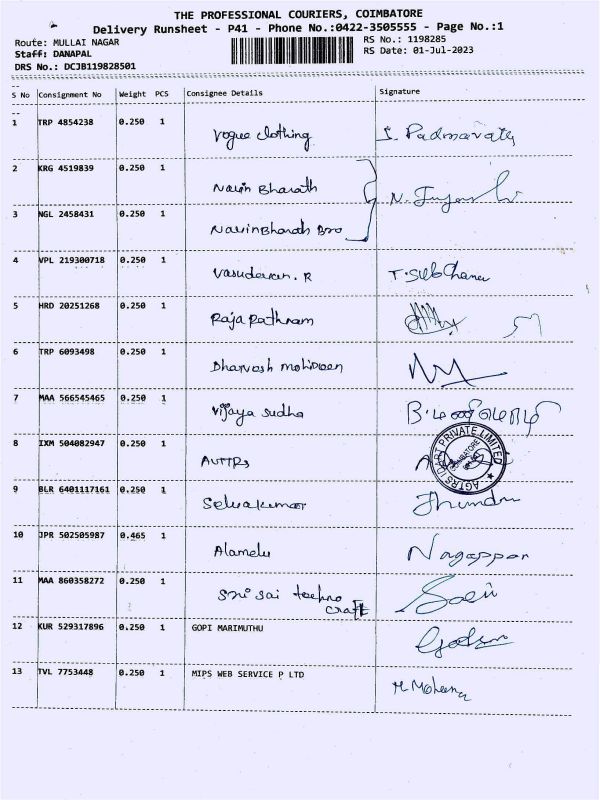 THE PROFESSIONAL COURIERS, COIMBATORE
Delivery Runsheet - P41 - Phone No.:0422-3505555 - Page No.:1
Route: MULLAI NAGAR
RS No.: 1198285
Staff: DANAPAL
RS Date: 01-Jul-2023
DRS No.: DCJB119828501
S No Consignment No Weight PCS Consignee Details Signature
1 TRP 4854238 0.250 1 Vogue clothing S. Padmavathy
2 KRG 4519839 0.250 1 Navin Bharath
3 NGL 2458431 0.250 1 NavinBharath Bro
4 VPL 219300718 0.250 1 Vasudevan. R T. Subchana
5 HRD 20251268 0.250 1 Rajarathnam
6 TRP 6093498 0.250 1 Dharvesh mohideen
7 MAA 566545465 0.250 1 Vijaya sudha
8 IXM 504082947 0.250 1
AGTRS IQ ART PRIVATE LIMITED
COIMBATORE
9 BLR 6401117161 0.250 1 Selvakumar
10 JPR 502505987 0.465 1 Alamelu Nagappan
11 MAA 860358272 0.250 1 Sri sai techno
craft
12 KUR 529317896 0.250 1 GOPI MARIMUTHU
13 TVL 7753448 0.250 1 MIPS WEB SERVICE P LTD M. Moheena